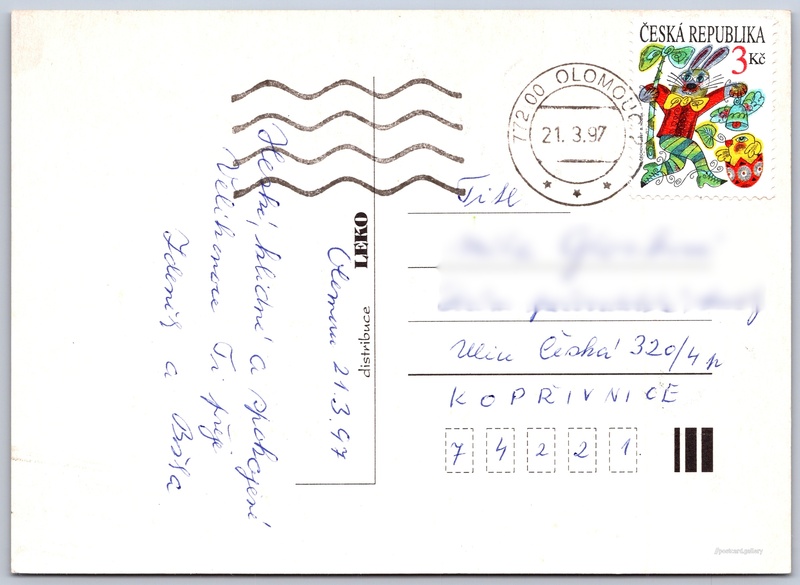 ČESKÁ REPUBLIKA
3 Kč
772 00 OLOMOUC 2
21. 3. 97
Hezké, klidné a spokojené
Velikonoce Ti přeje
Zdeněk a Božka
Olomouc 21.3.97
LEKO
distribuce
Tit.
Česká 320/4
KOPŘIVNICE
7 4 2 2 1
//postcard.gallery